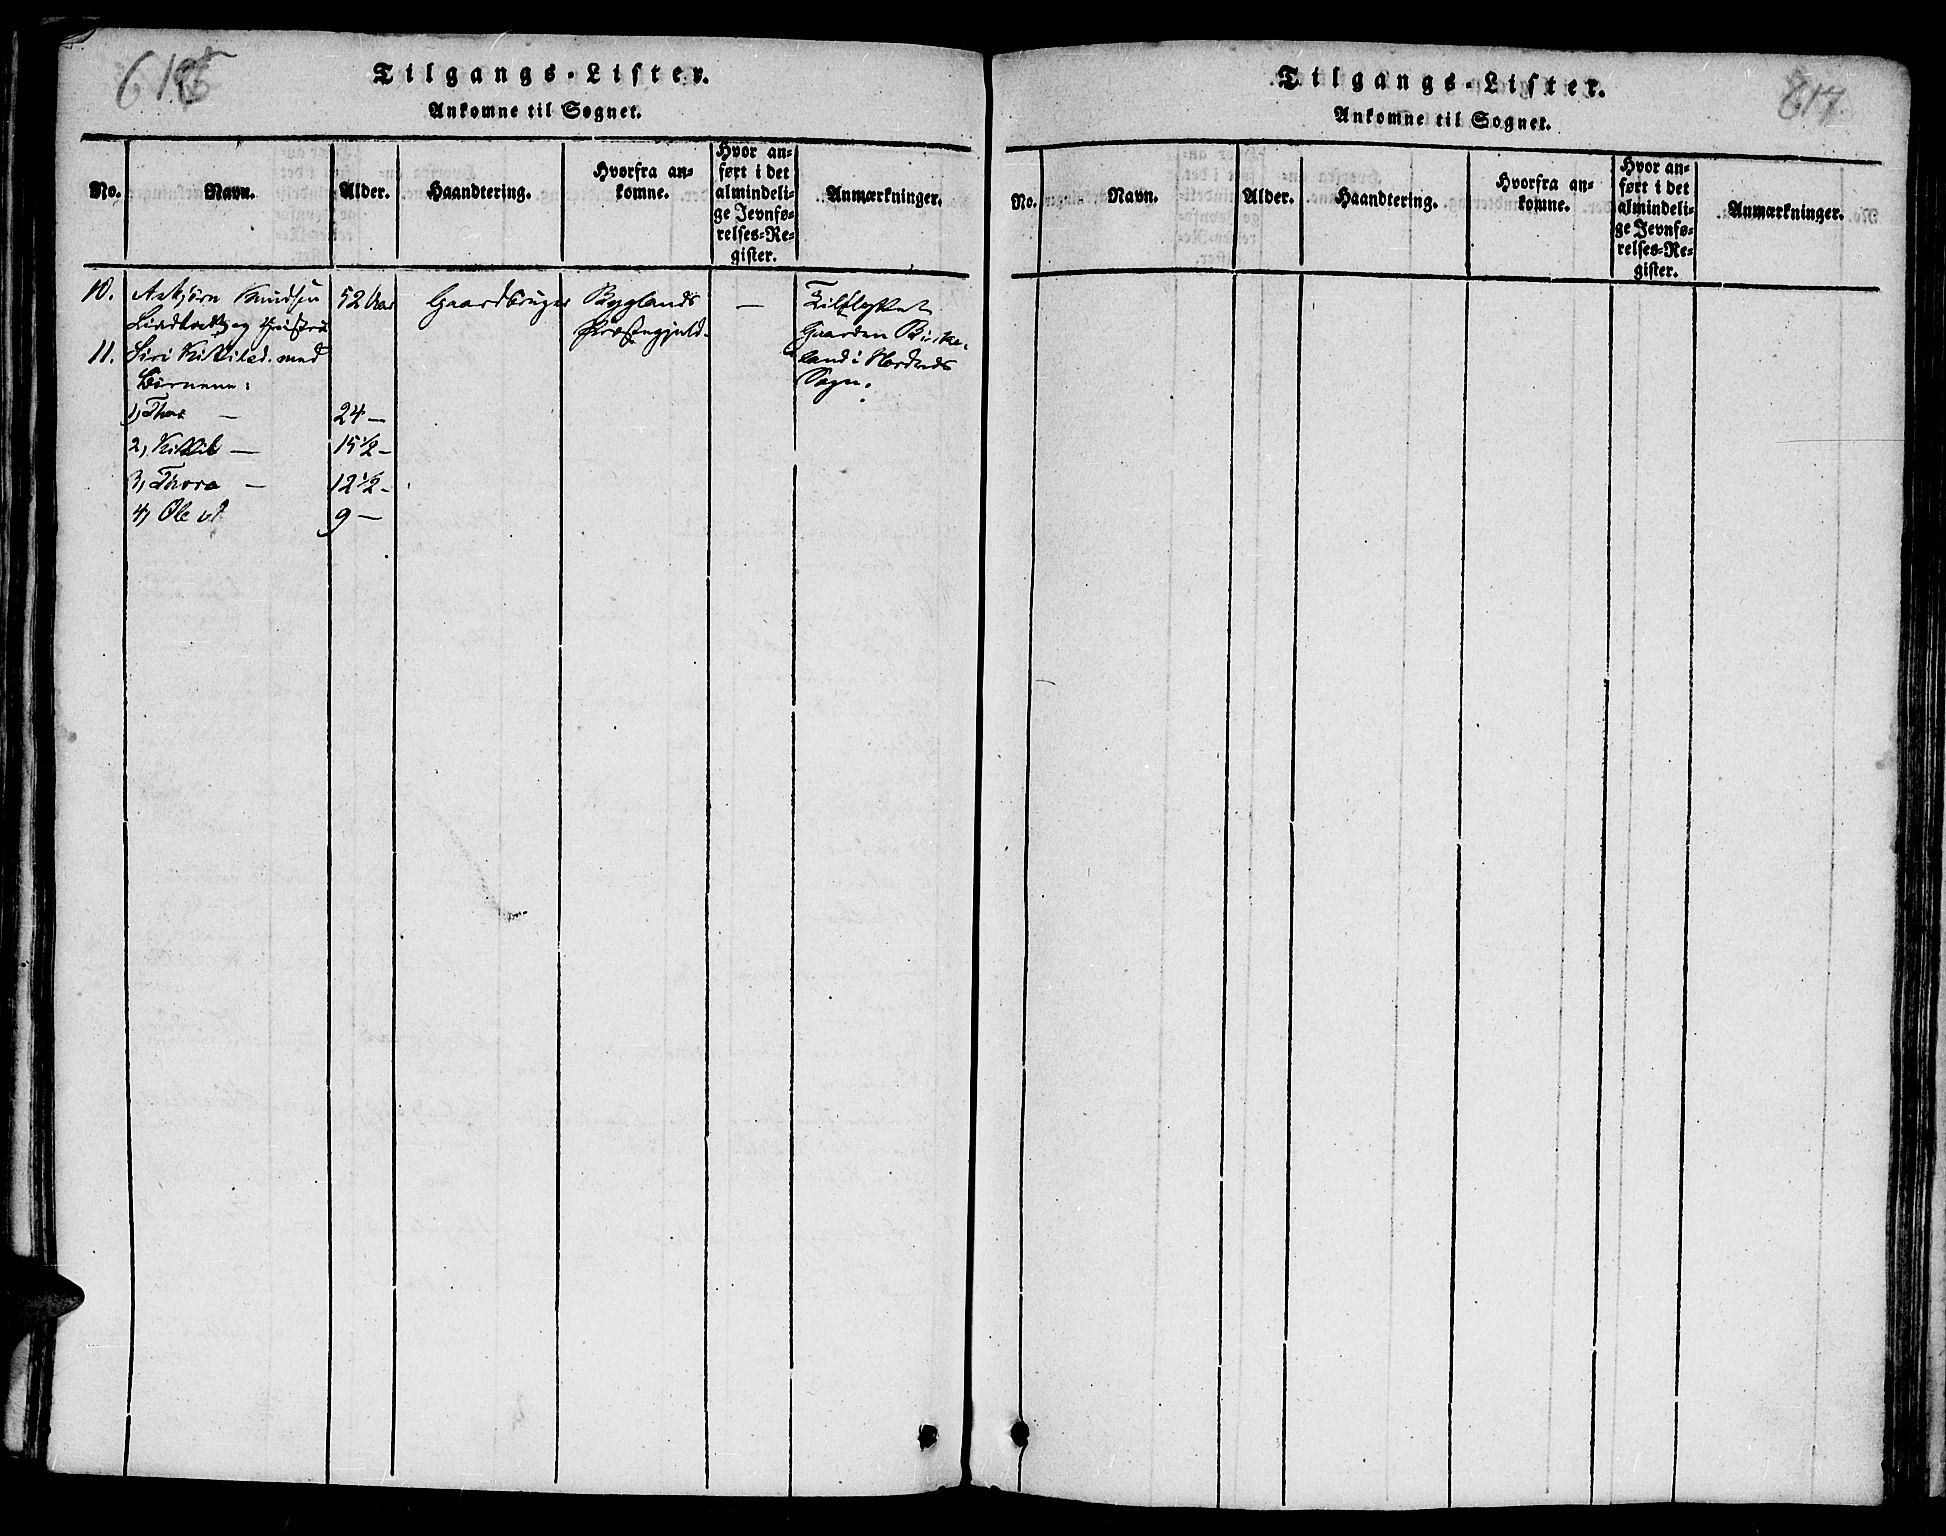 Tilgangs-Lister.
Ankomne til Sognet.
No.
Navn.
Alder.
Haandtering.
Hvorfra an-
komne.
Hvor an-
ført i det
almindeli-
ge Jevnfø-
relses-Re-
gister.
Anmærkninger.
10.
Asbjörn Knudsen
52 Aar
Gaardbruger
Byglands
—
Tilflyttet
og Hustru
Præstegjeld.
Gaarden Birke-
11.
Siri Kittilsd. med
land i Herefos
Börnene:
Sogn.
1, Thor —
24 —
2, Kittil —
15 1/2 —
3, Thore —
12 1/2 —
4, Ole
9 —
617.
Tilgangs-Lister.
Ankomne til Sognet.
No.
Navn.
Alder.
Haandtering.
Hvorfra an-
komne.
Hvor an-
ført i det
almindeli-
ge Jevnfø-
relses-Re-
gister.
Anmærkninger.